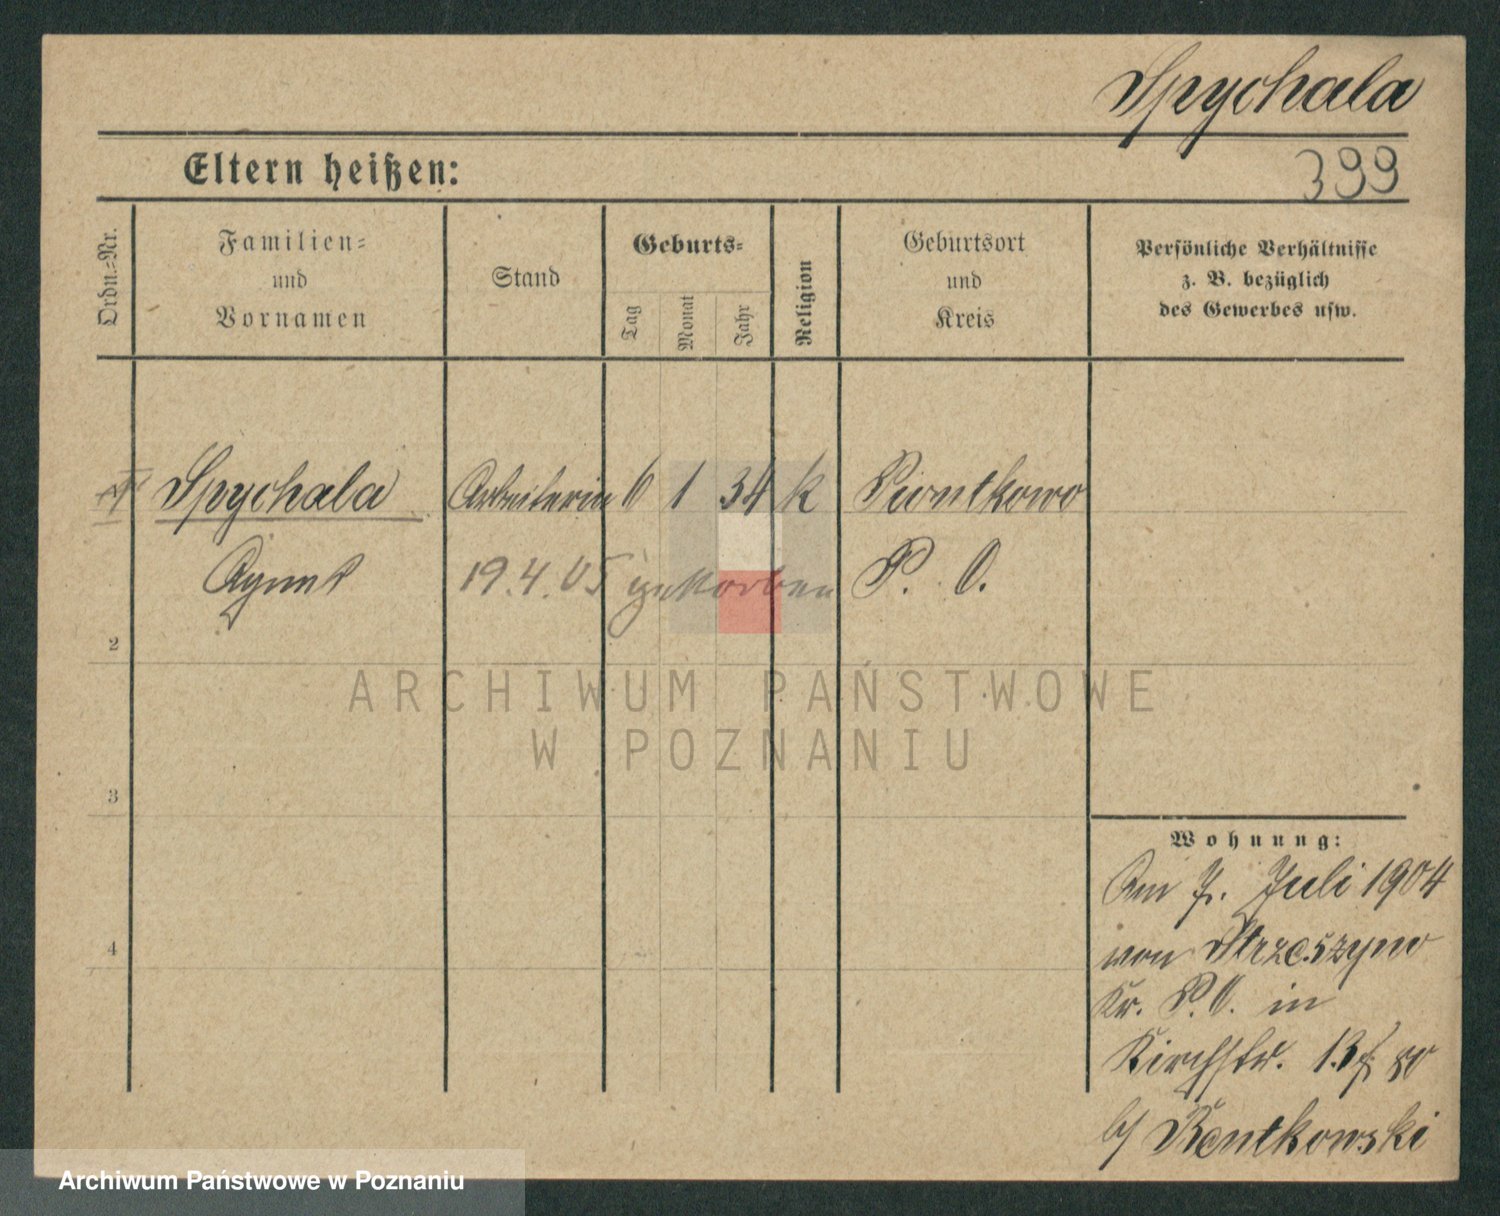 Spychala
Eltern heißen:
399
Ordn.-Nr.
Familien-
und
Vornamen
Stand
Geburts-
Tag
Monat
Jahr
Religion
Geburtsort
und
Kreis
Persönliche Verhältnisse
z. B. bezüglich
des Gewerbes usw.
Spychala Arbeiterin 6 1 34 k Piontkowo
19.4.05 gestorben P. O.
2
3
4
ARCHIWUM PAŃSTWOWE
W POZNANIU
Wohnung:
Am 7. Juli 1904
von Strzeszyno
Kr. P.O. in
Kirchstr.
b/ Rentkowski
Archiwum Państwowe w Poznaniu